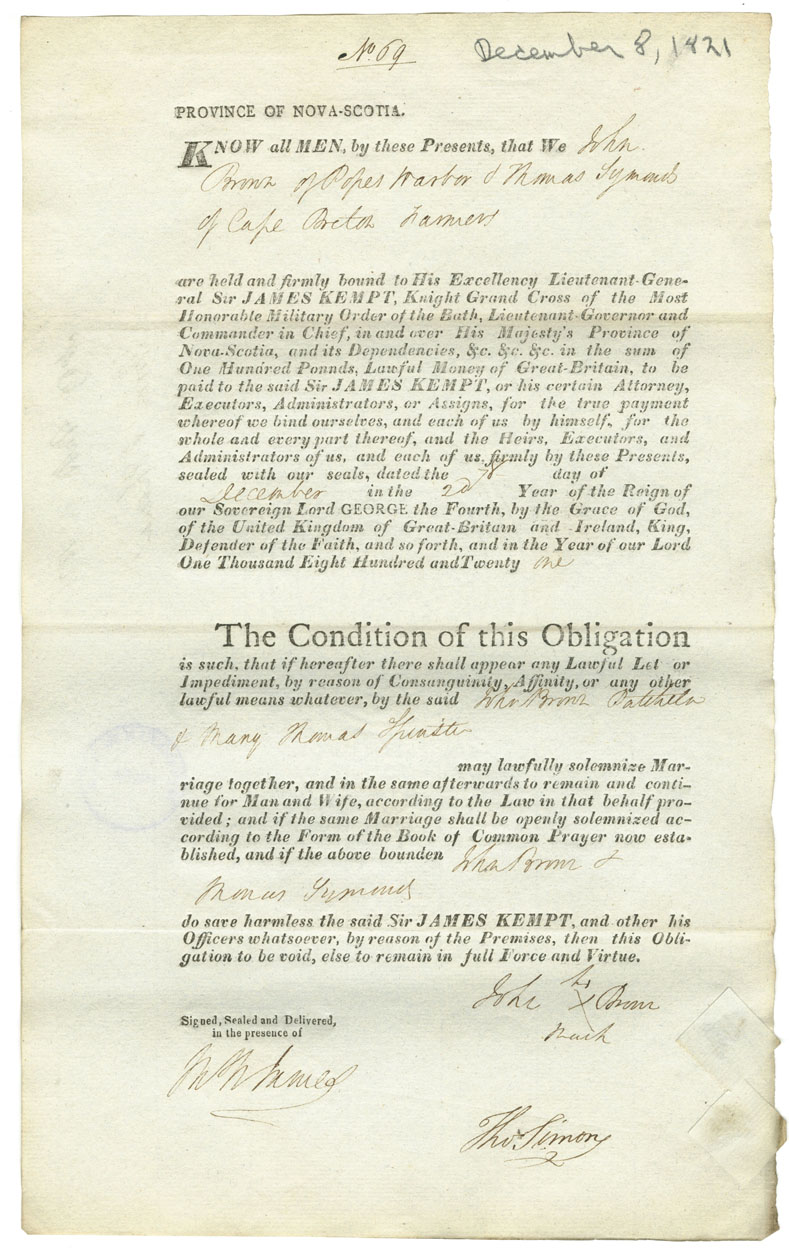 No. 69
December 8, 1821
PROVINCE OF NOVA-SCOTIA.
KNOW all MEN, by these Presents, that We John
Brown of Popes Harbor & Thomas Symonds
of Cape Breton Farmers
are held and firmly bound to His Excellency Lieutenant-Gene-
ral Sir JAMES KEMPT, Knight Grand Cross of the Most
Honorable Military Order of the Bath, Lieutenant-Governor and
Commander in Chief, in and over His Majesty's Province of
Nova-Scotia, and its Dependencies, &c. &c. &c. in the sum of
One Hundred Pounds, Lawful Money of Great-Britain, to be
paid to the said Sir JAMES KEMPT, or his certain Attorney,
Executors, Administrators, or Assigns, for the true payment
whereof we bind ourselves, and each of us by himself, for the
whole and every part thereof, and the Heirs, Executors, and
Administrators of us, and each of us, firmly by these Presents,
sealed with our seals, dated the 8 day of
December in the 2d Year of the Reign of
our Sovereign Lord GEORGE the Fourth, by the Grace of God,
of the United Kingdom of Great-Britain and Ireland, King,
Defender of the Faith, and so forth, and in the Year of our Lord
One Thousand Eight Hundred and Twenty one
The Condition of this Obligation
is such, that if hereafter there shall appear any Lawful Let or
Impediment, by reason of Consanguinity, Affinity, or any other
lawful means whatever, by the said John Brown Batchelor
& Mary Thomas Spinster
may lawfully solemnize Mar-
riage together, and in the same afterwards to remain and conti-
nue for Man and Wife, according to the Law in that behalf pro-
vided; and if the same Marriage shall be openly solemnized ac-
cording to the Form of the Book of Common Prayer now esta-
blished, and if the above bounden John Brown &
Thomas Symonds
do save harmless the said Sir JAMES KEMPT, and other his
Officers whatsoever, by reason of the Premises, then this Obli-
gation to be void, else to remain in full Force and Virtue.
John his X Brown
mark
Signed, Sealed and Delivered,
in the presence of
James
Thos. Simons